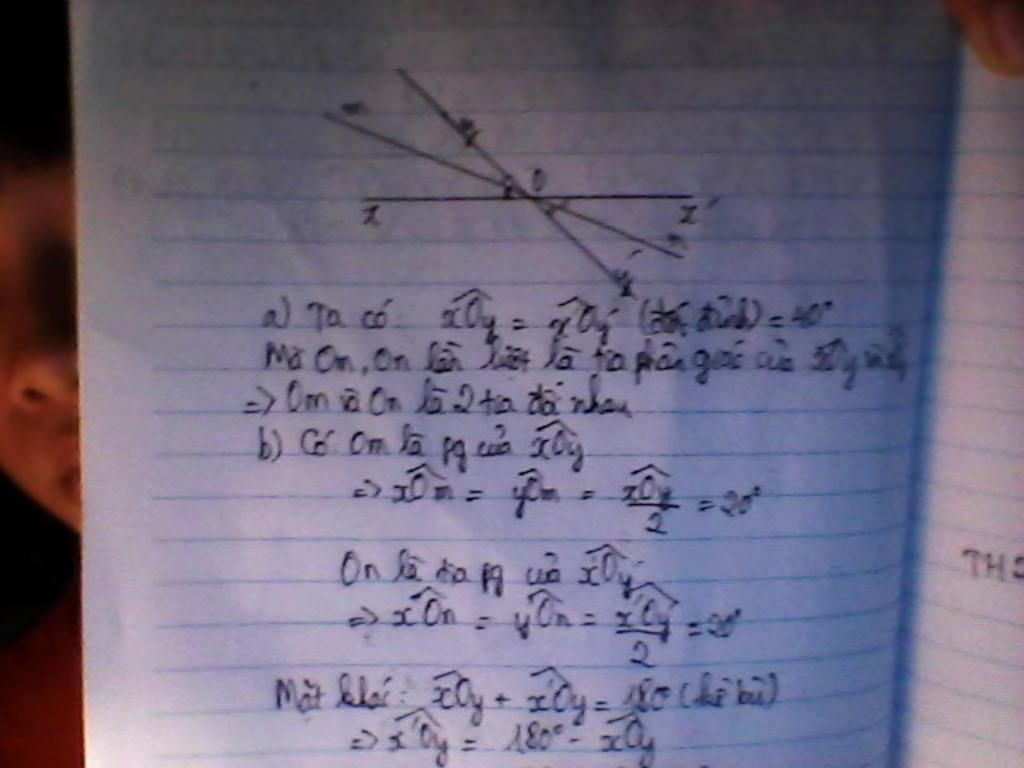 m
y
O
x
x'
n
y'
a) Ta có: xÔy = x'Ôy' (đối đỉnh) = 40°
Mà Om, On lần lượt là tia phân giác của xÔy và
=> Om và On là 2 tia đối nhau
b) Có Om là pg của xÔy
=> xÔm = yÔm = xÔy/2 = 20°
On là tia pg của x'Ôy'
=> x'Ôn = y'Ôn = x'Ôy'/2 = 20°
Mặt khác: xÔy + x'Ôy = 180° (kề bù)
=> x'Ôy = 180° - xÔy